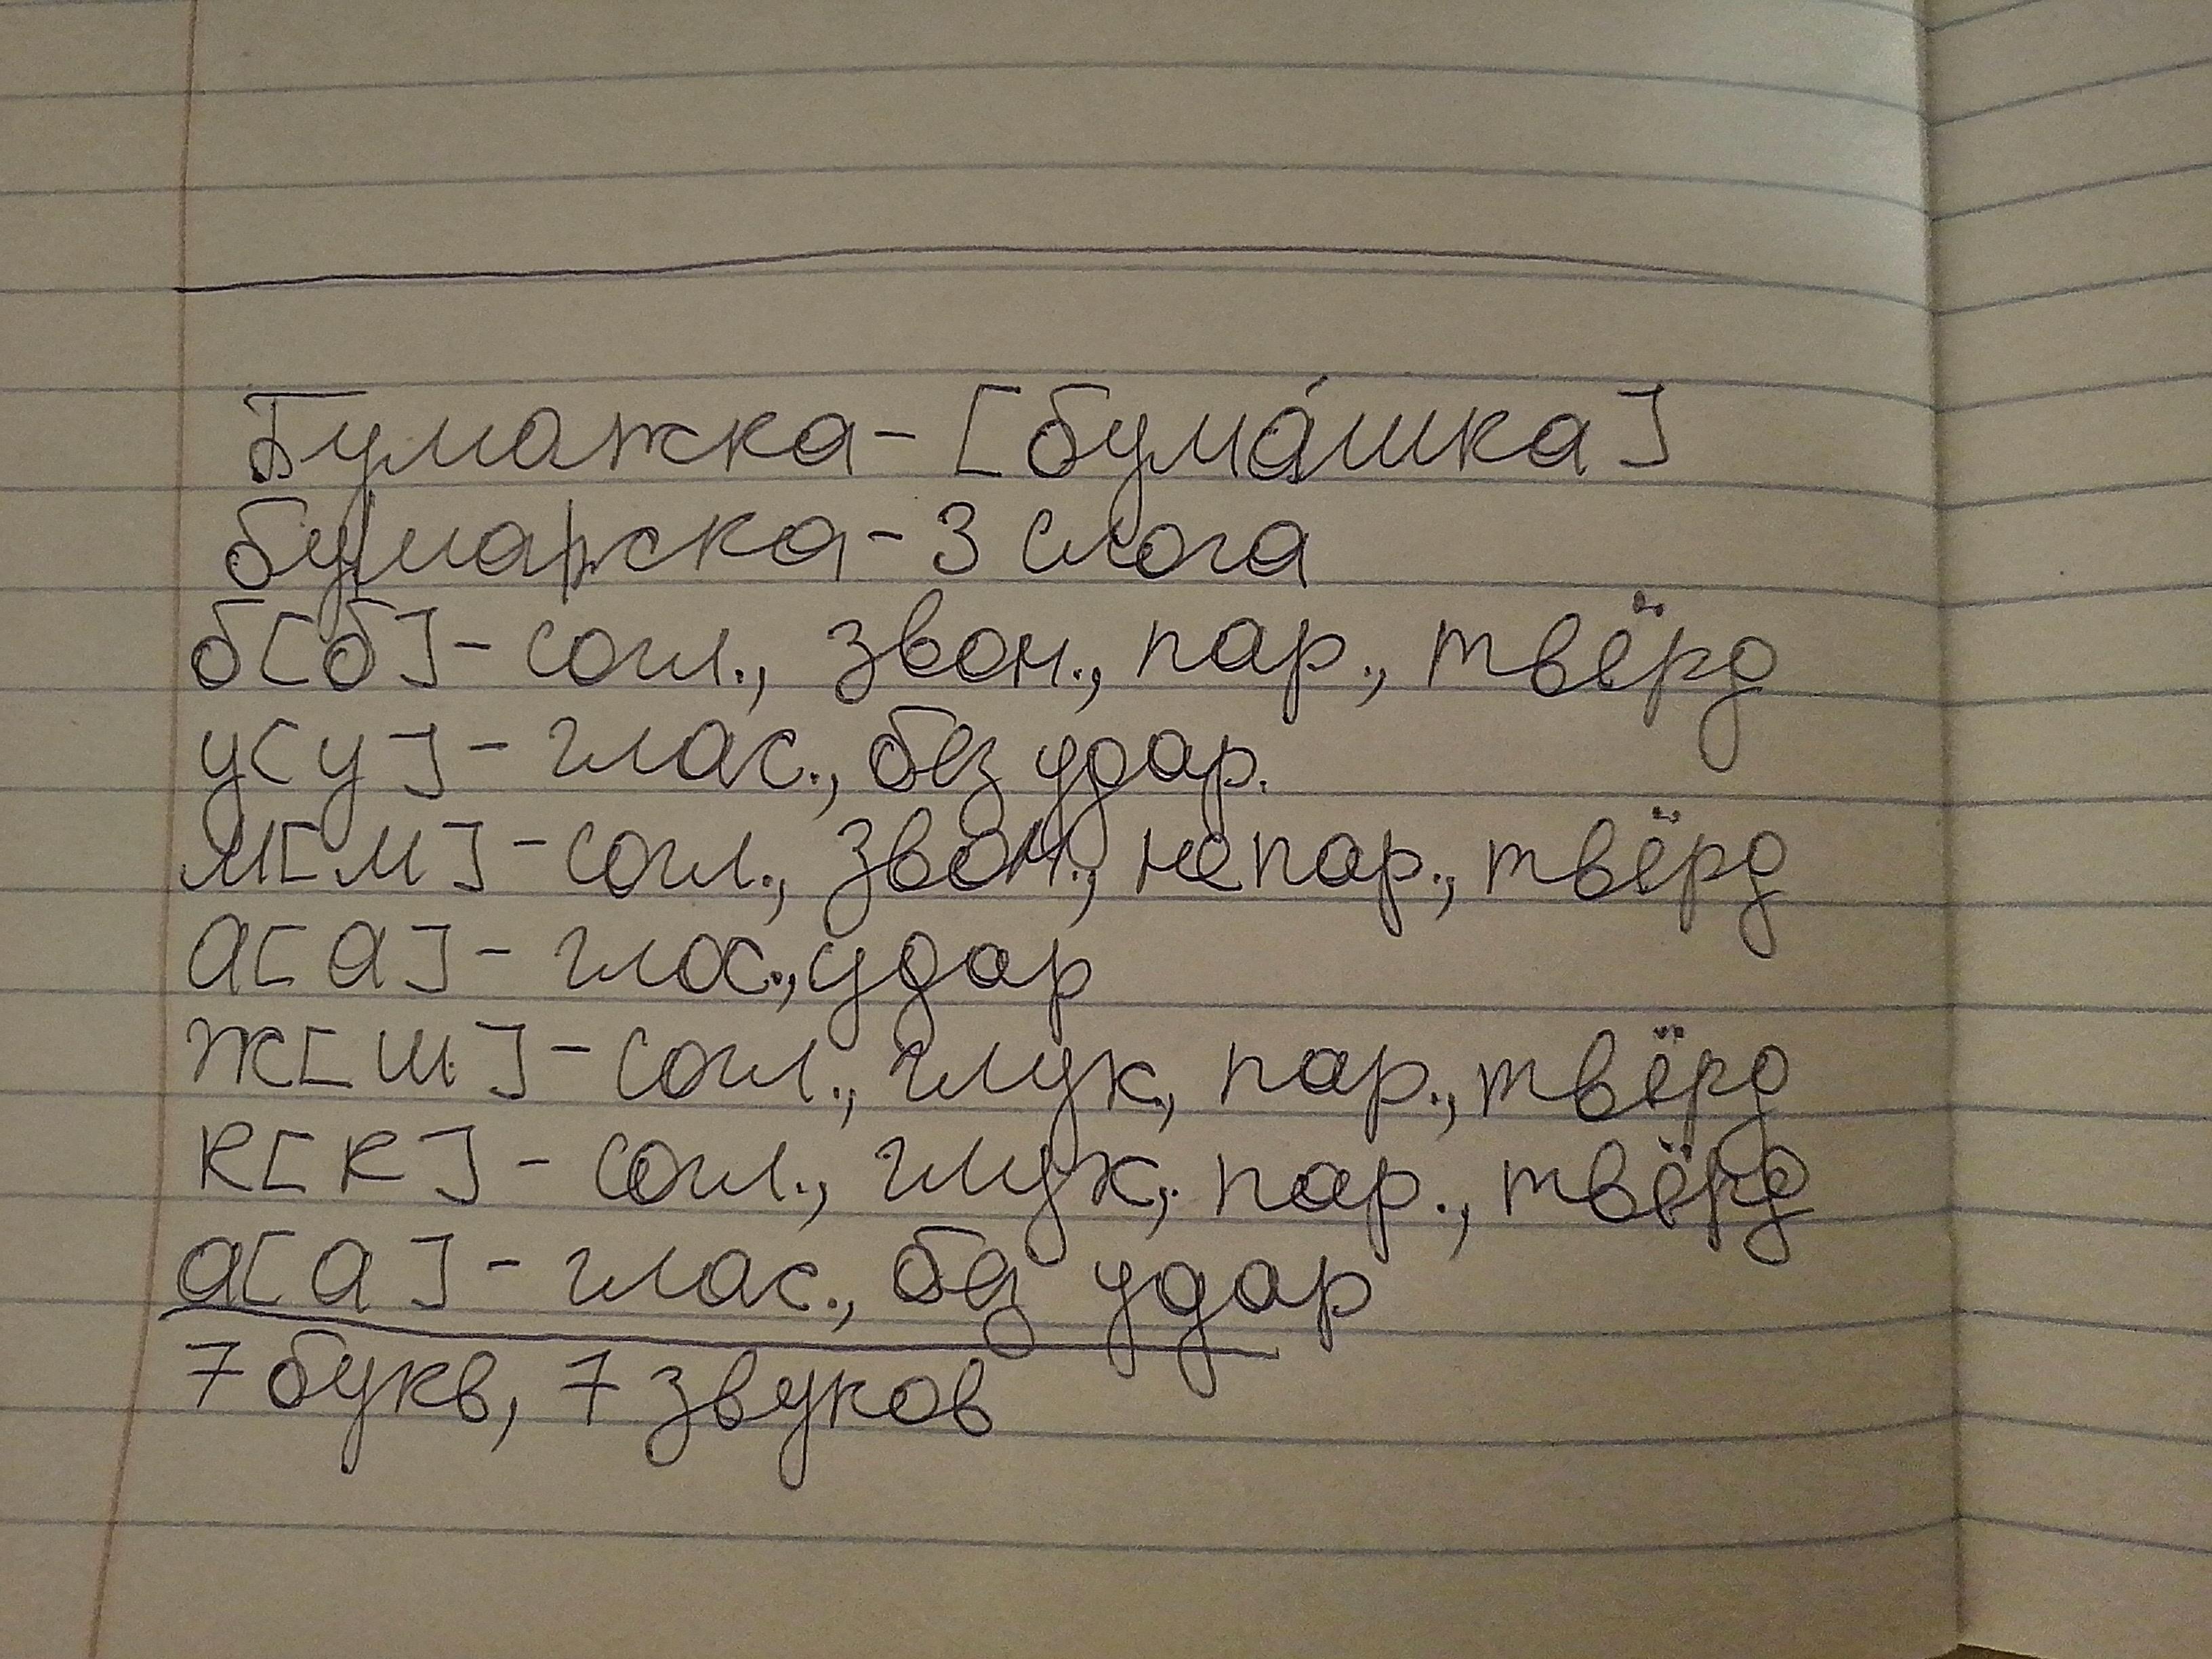 Бумажка - [бума́шка]
бу|ма|жка - 3 слога
б[б] - согл., звон., пар., твёрд
у[у] - глас., без удар.
м[м] - согл., звон., непар., твёрд
а[а] - глас., удар
ж[ш] - согл., глух, пар., твёрд
к[к] - согл., глух, пар., твёрд
а[а] - глас., без удар
7 букв, 7 звуков